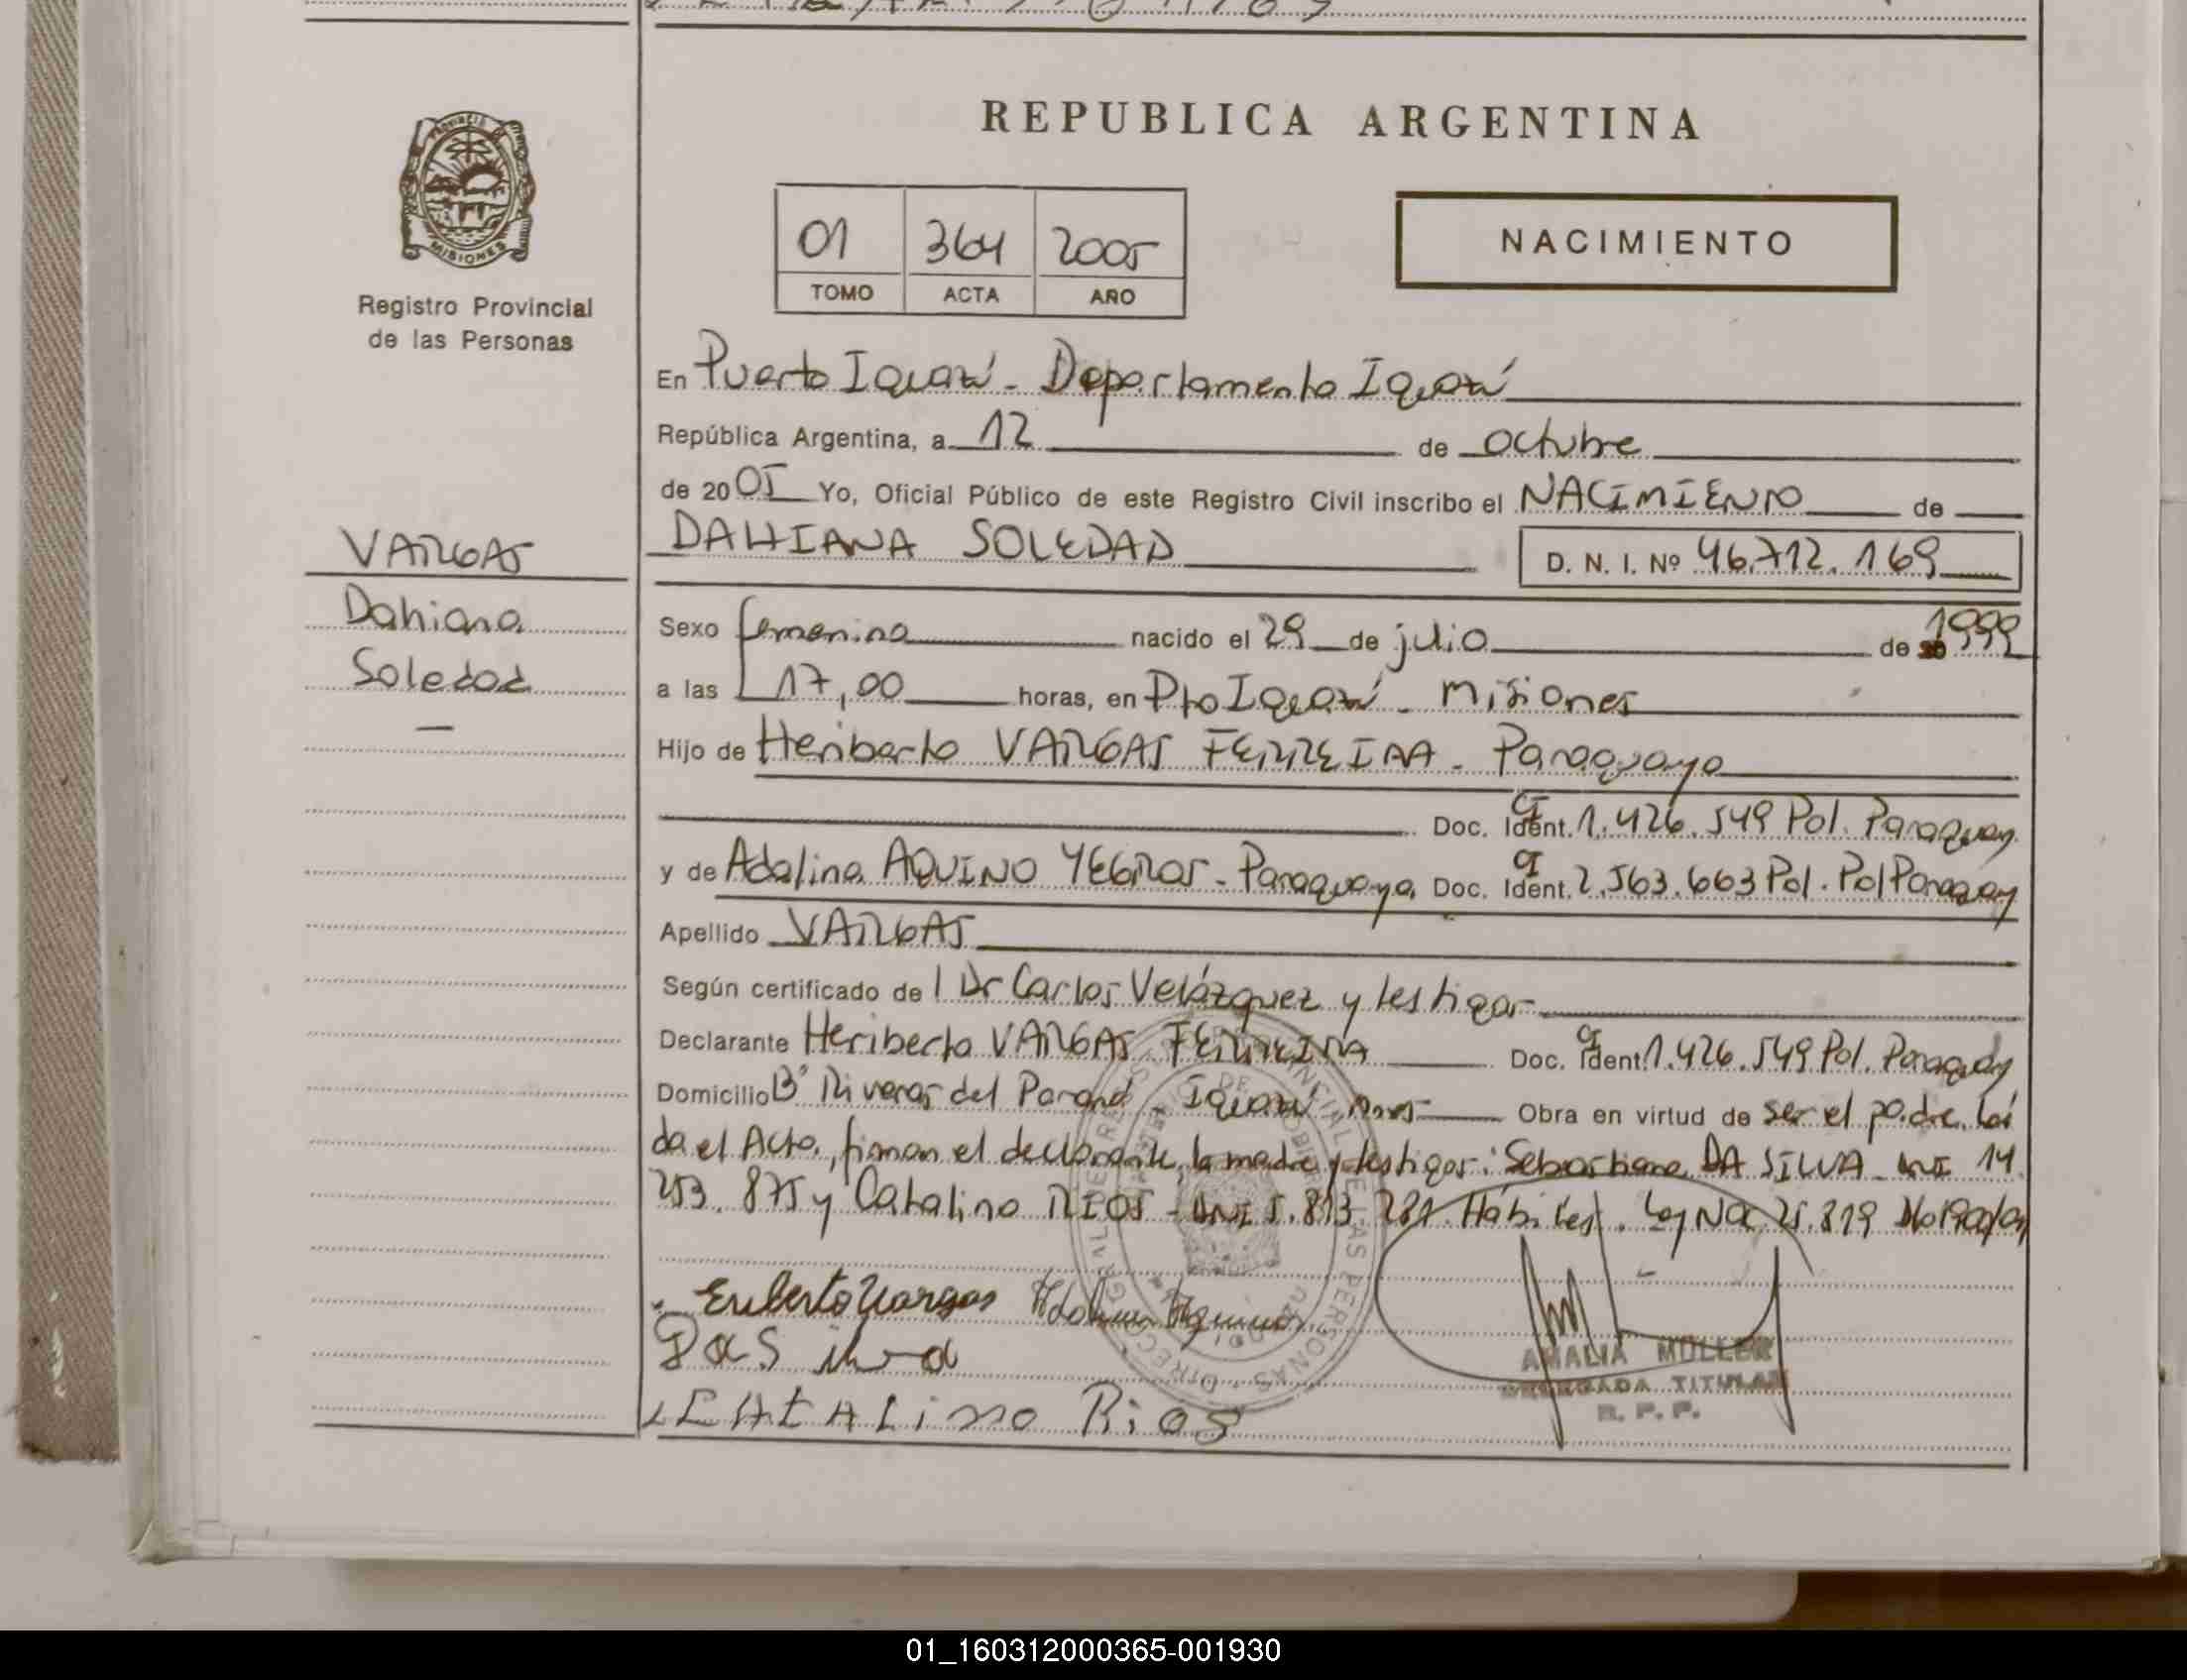 REPUBLICA ARGENTINA
PROVINCIA DE
MISIONES
Registro Provincial
de las Personas
01 364 2005
TOMO ACTA AÑO
NACIMIENTO
En Puerto Iguazú - Departamento Iguazú
República Argentina, a 12 de octubre
de 2005 Yo, Oficial Público de este Registro Civil inscribo el NACIMIENTO de
DAHIANA SOLEDAD D. N. I. Nº 46.712.169
VARGAS
Dahiana
Soledad
Sexo femenino nacido el 29 de julio de 1999
a las 17,00 horas, en Pto Iguazú - Misiones
Hijo de Heriberto VARGAS FERREIRA - Paraguayo
Doc. Ident. CI 1.426.549 Pol. Paraguay
y de Adalina AQUINO YEGROS - Paraguaya Doc. Ident. CI 2.563.663 Pol. Pol Paraguay
Apellido VARGAS
Según certificado de l Dr Carlos Velázquez y testigos
Declarante Heriberto VARGAS FERREIRA Doc. Ident. CI 1.426.549 Pol. Paraguay
Domicilio Bº Riveras del Paraná Iguazú Mnes Obra en virtud de ser el padre. Leí
da el Acta, firman el declarante, la madre y testigos: Sebastiana DA SILVA - DNI 14.
253.875 y Catalino RIOS - DNI 5.813.281. Hábiles. Ley Nac 25.819
Eriberto Vargas Adalina Aquino
Da Silva
CATALINO Rios
AMALIA MULLER
DELEGADA TITULAR
R. P. P.
01_160312000365-001930